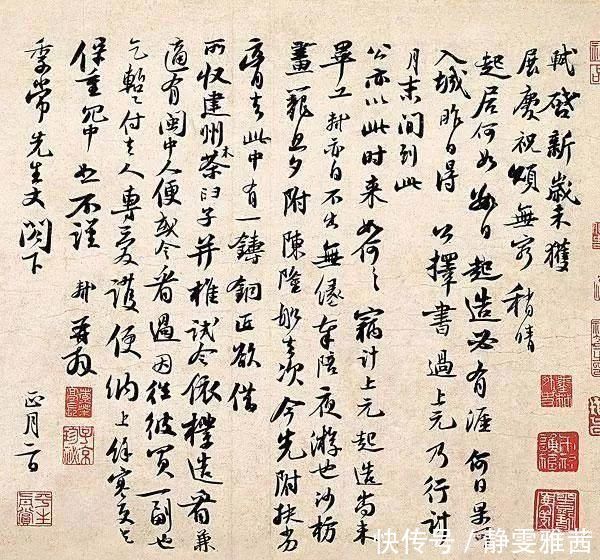 軾啓新歲未獲
展慶祝頌無窮稍晴
起居何如數日起造必有涯何日果可
入城昨日得公擇書過上元乃行計
月末間到此
公亦以此時來如何々竊計上元起造尚未
畢工軾亦自不出無緣奉陪夜游也沙枋
畫籠旦夕附陳隆船去次今先附扶劣
膏去此中有一鑄銅匠欲借
所收建州木茶臼子并椎試令依樣造看兼
適有閩中人便或令看過因往彼買一副也
乞暫付去人專愛護便納上餘寒更乞
保重冗中恕不謹軾再拜
季常先生丈閤下
正月二日
快传号/静雯雅茜